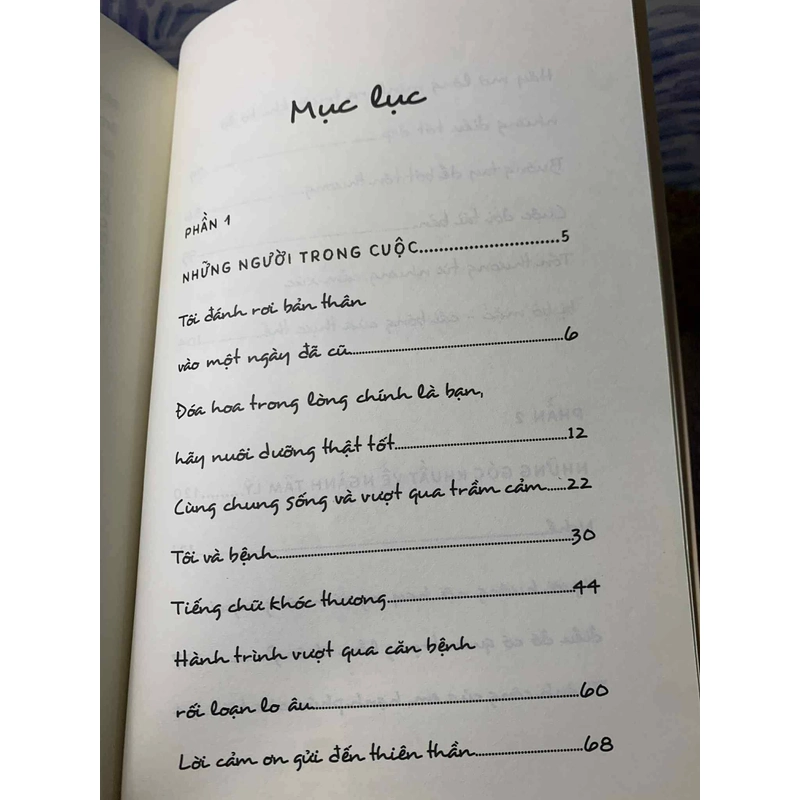 Mục lục
PHẦN 1
NHỮNG NGƯỜI TRONG CUỘC..............................5
Tôi đánh rơi bản thân
vào một ngày đã cũ..............................6
Đóa hoa trong lòng chính là bạn,
hãy nuôi dưỡng thật tốt..............................12
Cùng chung sống và vượt qua trầm cảm......22
Tôi và bệnh..............................30
Tiếng chữ khóc thương..............................44
Hành trình vượt qua căn bệnh
rối loạn lo âu..............................60
Lời cảm ơn gửi đến thiên thần..............................68